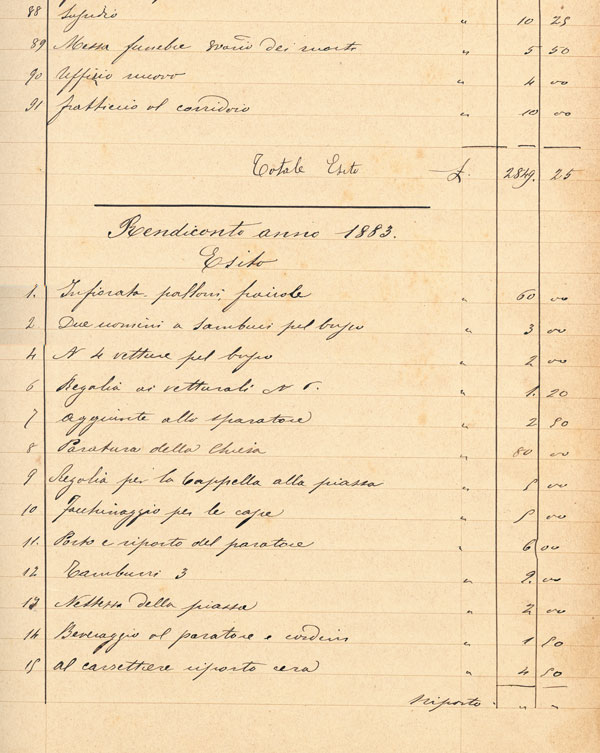 88 Sussidio " 10 25
89 Messa funebre dei morti " 5 50
90 Ufficio nuovo " 4 00
91 al corridoio " 10 00
Totale Esito £ 2849. 25
Rendiconto anno 1883.
Esito
1. Infiorata palloni " 60 00
2 Due uomini a tamburi pel " 3 00
4 N 4 vetture pel " 2 00
6 Regalia ai vetturali N " 1. 20
7 Aggiunte allo sparatore " 2 50
8 Paratura della Chiesa " 80 00
9 Regalia per la Cappella alla piassa " 5 00
10 Facchinaggio per le " 5 00
11. Porto e riporto del paratore " 6 00
12 Tamburri 3 " 9. 00
13 Nettessa della piassa " 2 00
14 Beveraggio al paratore e " 1 50
15 al carrettiere riporto cera " 4 50
riporto " " "